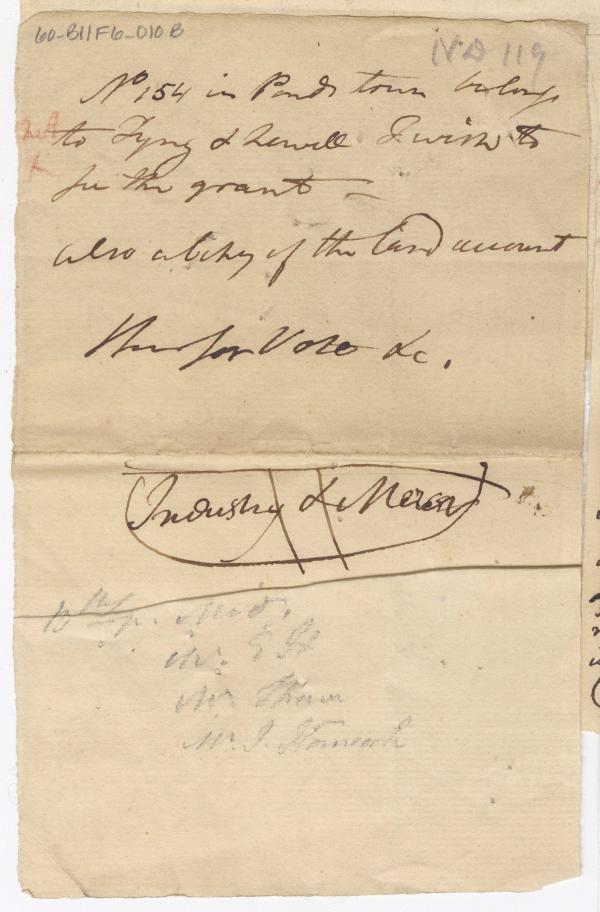 60-B11F6-010B
ND 119
No 154 in Ponds town belongs
to Tyng & Lowell I wish to
see the grant —
also a Copy of the Land account
Vote &c.
Industry & Mercer
Mr.
Mr. Thaw
Mr. J. Hancock